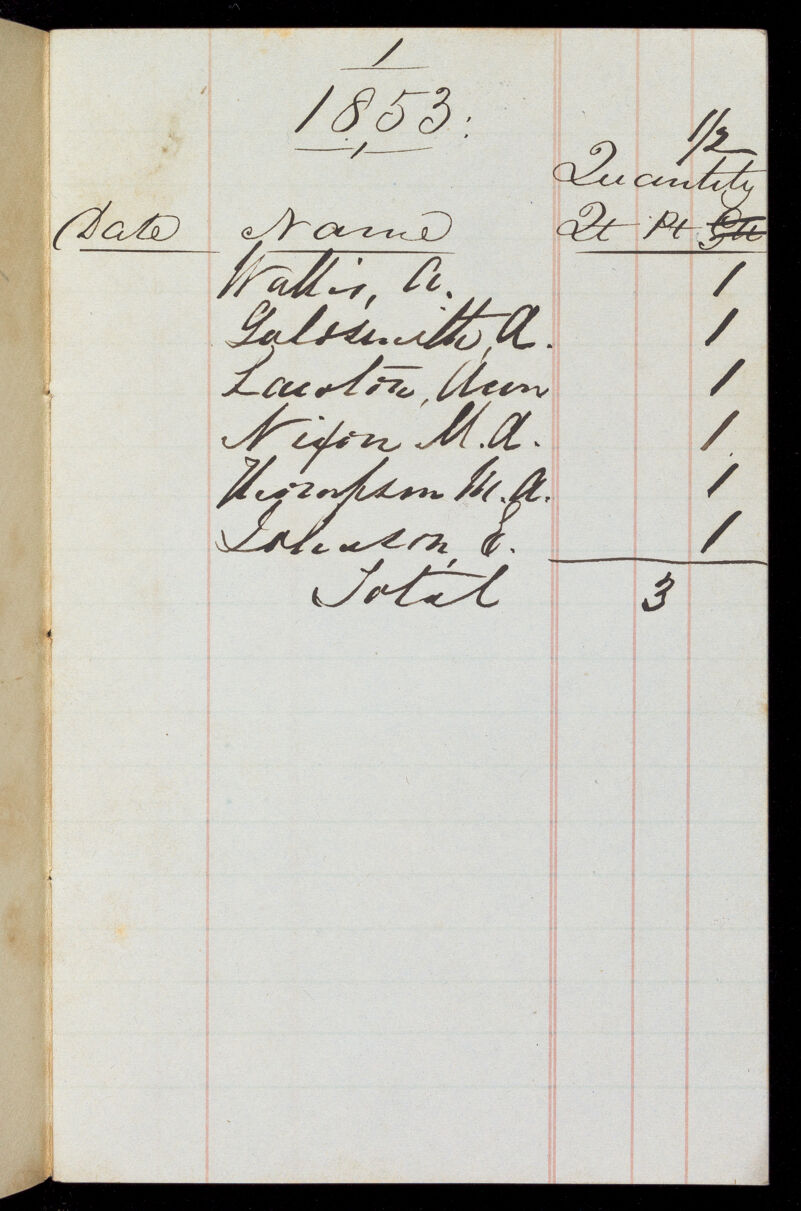 1
1853:
1/2
Quantity
Date Name Qt Pt
Wallis, A. 1
Goldsmith, A. 1
Lawton, Ann 1
Nixon M. A. 1
Thompson M. A. 1
Johnson, E. 1
Total 3